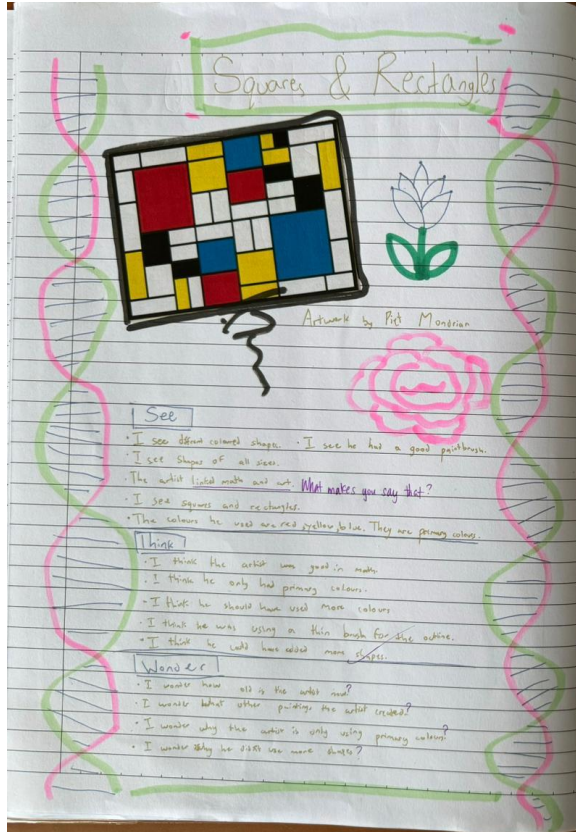 Squares & Rectangles
Artwork by Piet Mondrian
See
· I see dfferent coloured shapes. · I see he had a good paintbrush.
· I see shapes of all sizes.
· The artist linked math and art. What makes you say that?
· I see squares and rectangles.
· The colours he used are red, yellow, blue. They are primary colours.
Think
· I think the artist was good in math.
· I think he only had primary colours.
· I think he should have used more colours
· I think he was using a thin brush for the outline.
· I think he could have added more shapes.
Wonder
· I wonder how old is the artist now?
· I wonder what other paintings the artist created?
· I wonder why the artist is only using primary colours?
· I wonder why he didn't use more shapes?